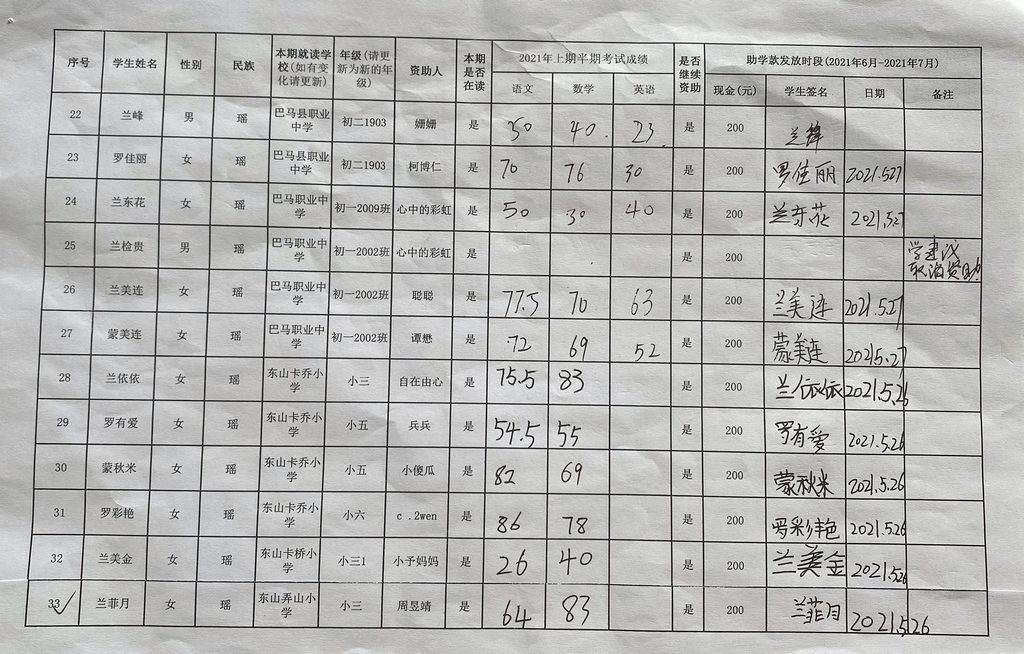 序号 学生姓名 性别 民族 本期就读学校(如有变化请更新) 年级(请更新为新的年级) 资助人 本期是否在读 2021年上期半期考试成绩 是否继续资助 助学款发放时段(2021年6月-2021年7月)
语文 数学 英语 现金(元) 学生签名 日期 备注
22 兰峰 男 瑶 巴马县职业中学 初二1903 姗姗 是 50 40. 23. 是 200 兰峰
23 罗佳丽 女 瑶 巴马县职业中学 初二1903 柯博仁 是 70 76 30 是 200 罗佳丽 2021.5.27
24 兰东花 女 瑶 巴马职业中学 初一2009班 心中的彩虹 是 50 30 40 是 200 兰东花 2021.5.27
25 兰检贵 男 瑶 巴马职业中学 初一2002班 心中的彩虹 是 是 200 取消资助
26 兰美连 女 瑶 巴马职业中学 初一2002班 聪聪 是 77.5 70 63 是 200 兰美连 2021.5.27
27 蒙美连 女 瑶 巴马职业中学 初一2002班 谭懋 是 72 69 52 是 200 蒙美连 2021.5.27
28 兰依依 女 瑶 东山卡乔小学 小三 自在由心 是 75.5 83 是 200 兰依依 2021.5.26
29 罗有爱 女 瑶 东山卡乔小学 小五 兵兵 是 54.5 55 是 200 罗有愛 2021.5.26
30 蒙秋米 女 瑶 东山卡乔小学 小五 小傻瓜 是 82 69 是 200 蒙秋米 2021.5.26
31 罗彩艳 女 瑶 东山卡乔小学 小六 c .2wen 是 86 78 是 200 罗彩艳 2021.5.26
32 兰美金 女 瑶 东山卡桥小学 小三1 小予妈妈 是 26 40 是 200 兰美金 2021.5.26
33 兰菲月 女 瑶 东山弄山小学 小三 周昱靖 是 64 83 是 200 兰菲月 2021.5.26